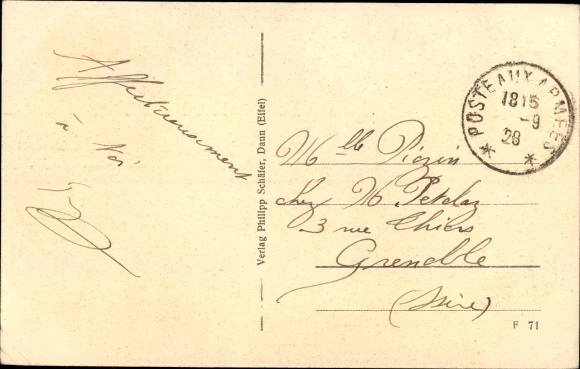 Affectueusement
à toi
Verlag Philipp Schäfer, Daun (Eifel)
POSTE AUX ARMEES
1815
-9
28
Mlle Piozin
chez M Petdaz
3 rue Thiers
Grenoble
(Isère)
F 71